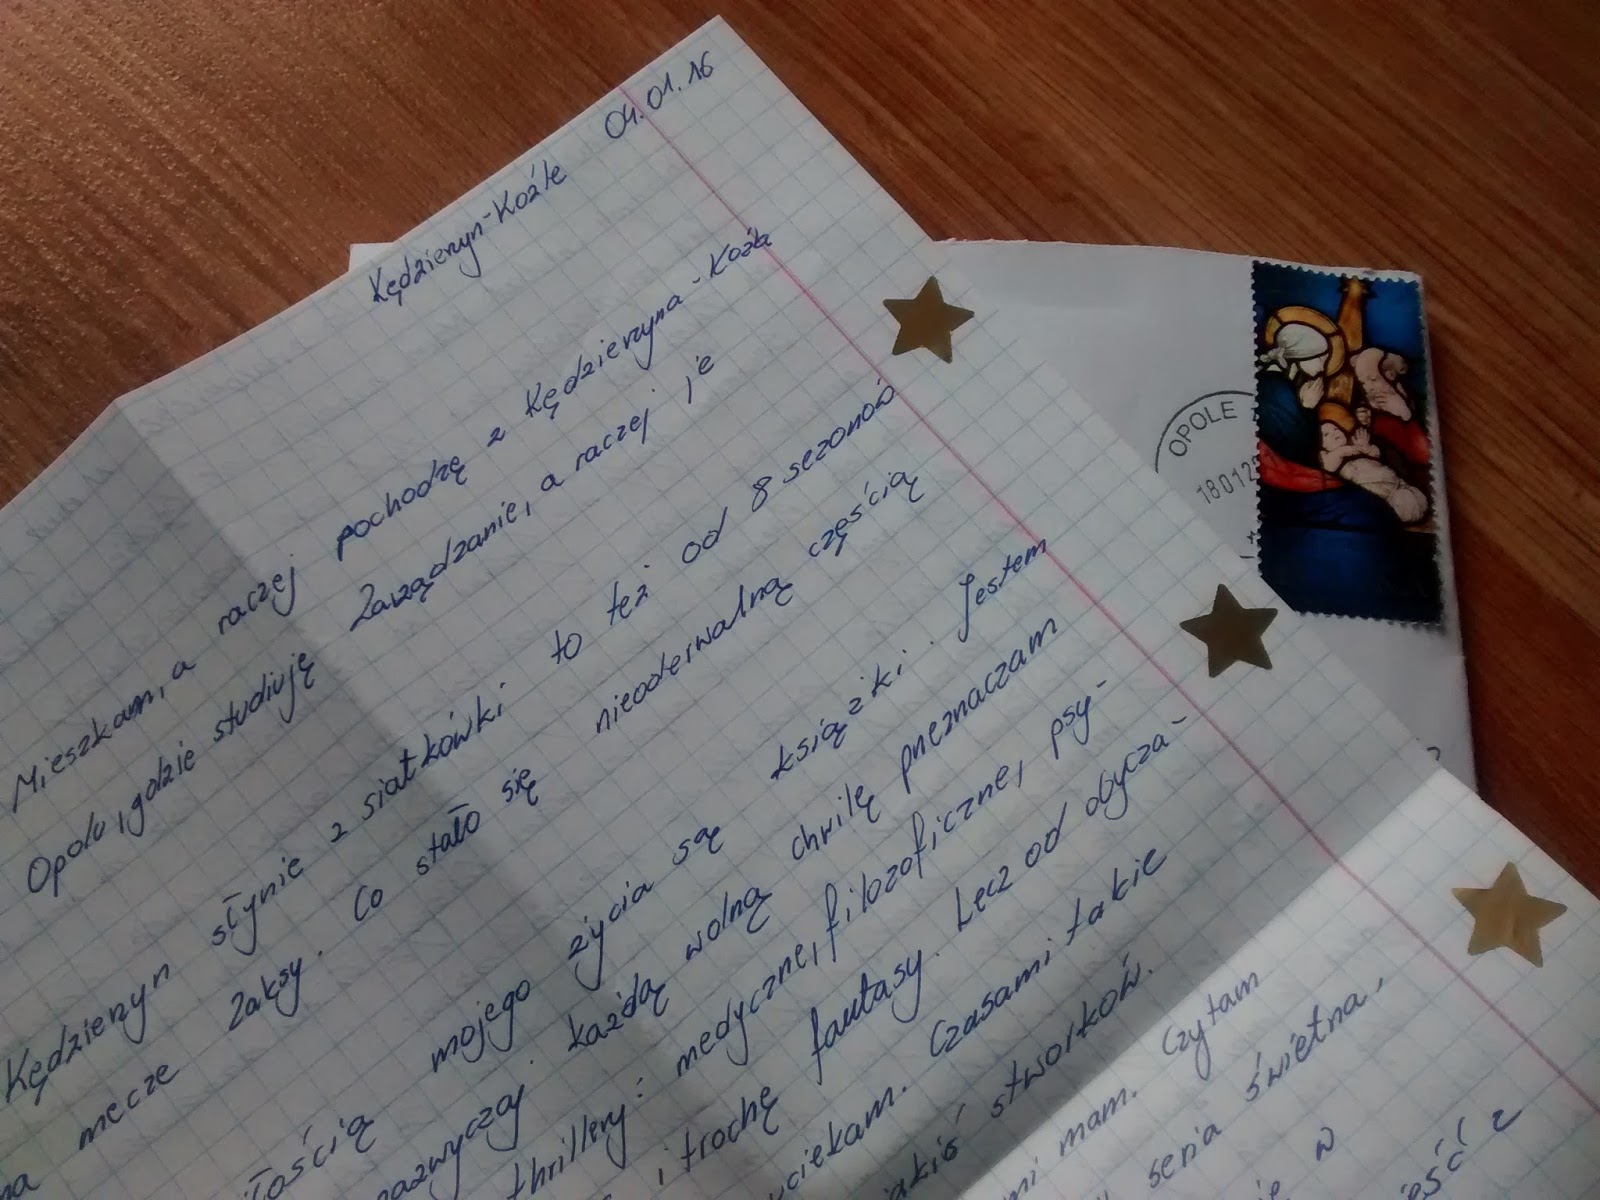 Kędzierzyn-Koźle 04.01.16
Mieszkam, a raczej pochodzę z Kędzierzyna-Koźla
Opolu, gdzie studiuję Zarządzanie, a raczej je
Kędzierzyn słynie z siatkówki to też od 8 sezonów
na mecze Zaksy. Co stało się nieoderwalną częścią
mojego życia są książki. Jestem
zazwyczaj każdą wolną chwilę przeznaczam
thrillery: medyczne, filozoficzne, psy-
i trochę fantasy. Lecz od obycza-
uciekam. Czasami takie
jakiś stworków.
mi mam. Czytam
seria świetna,
w
z
OPOLE
180122